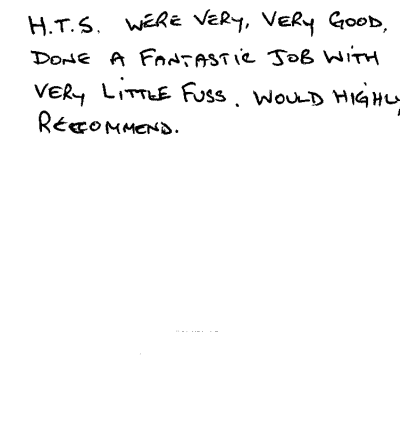 H.T.S. WERE VERY, VERY GOOD,
DONE A FANTASTIC JOB WITH
VERY LITTLE FUSS. WOULD HIGHLY
RECCOMMEND.